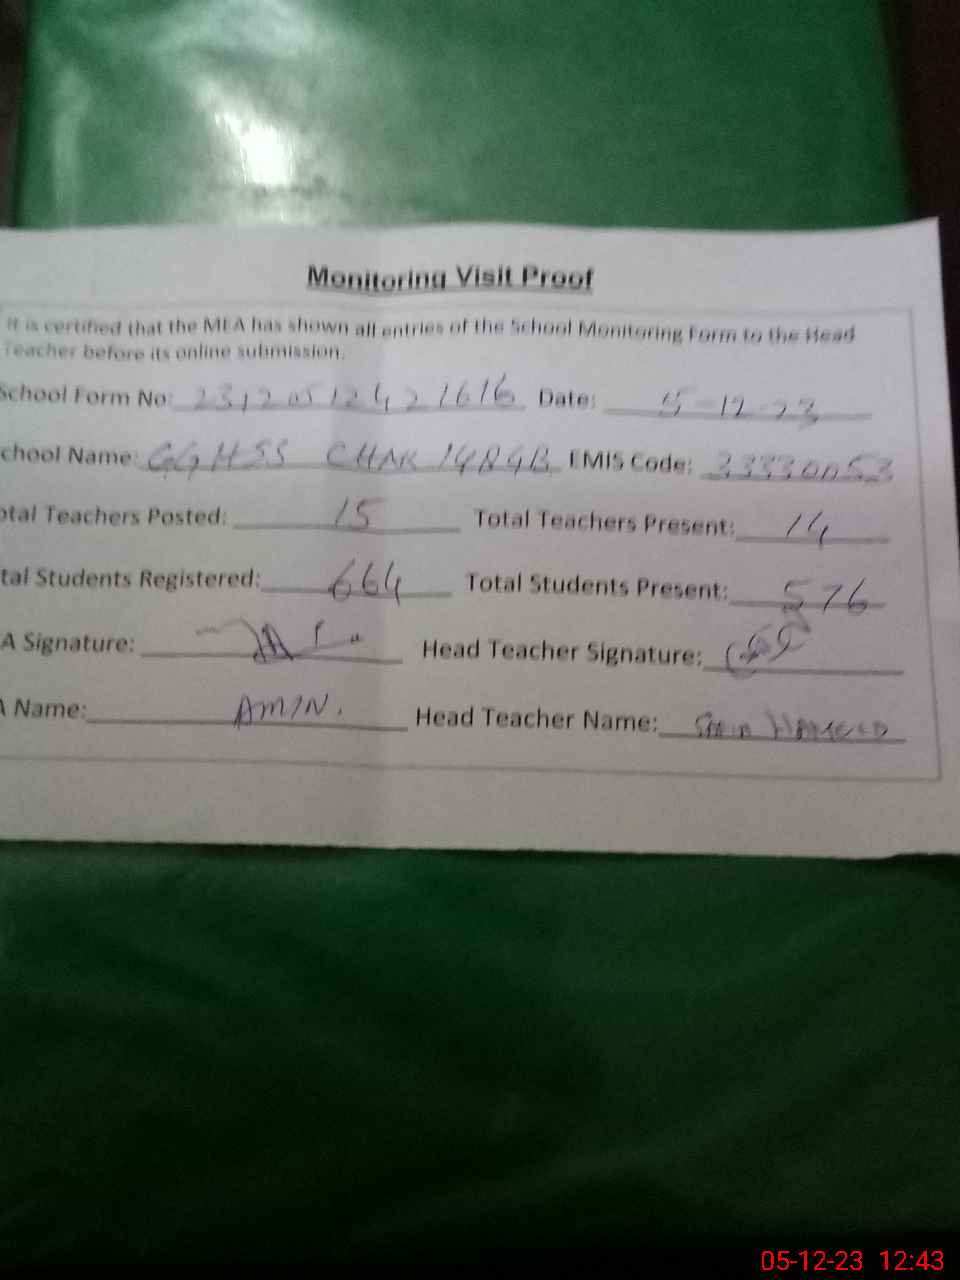 Monitoring Visit Proof
It is certified that the MEA has shown all entries of the School Monitoring Form to the Head
Teacher before its online submission.
School Form No: 23120512421616 Date: 5-12-23
chool Name: GGHSS CHAK 148GB EMIS Code: 33330053
otal Teachers Posted: 15 Total Teachers Present: 14
tal Students Registered: 664 Total Students Present: 576
A Signature: Head Teacher Signature:
A Name: AMIN. Head Teacher Name:
05-12-23 12:43